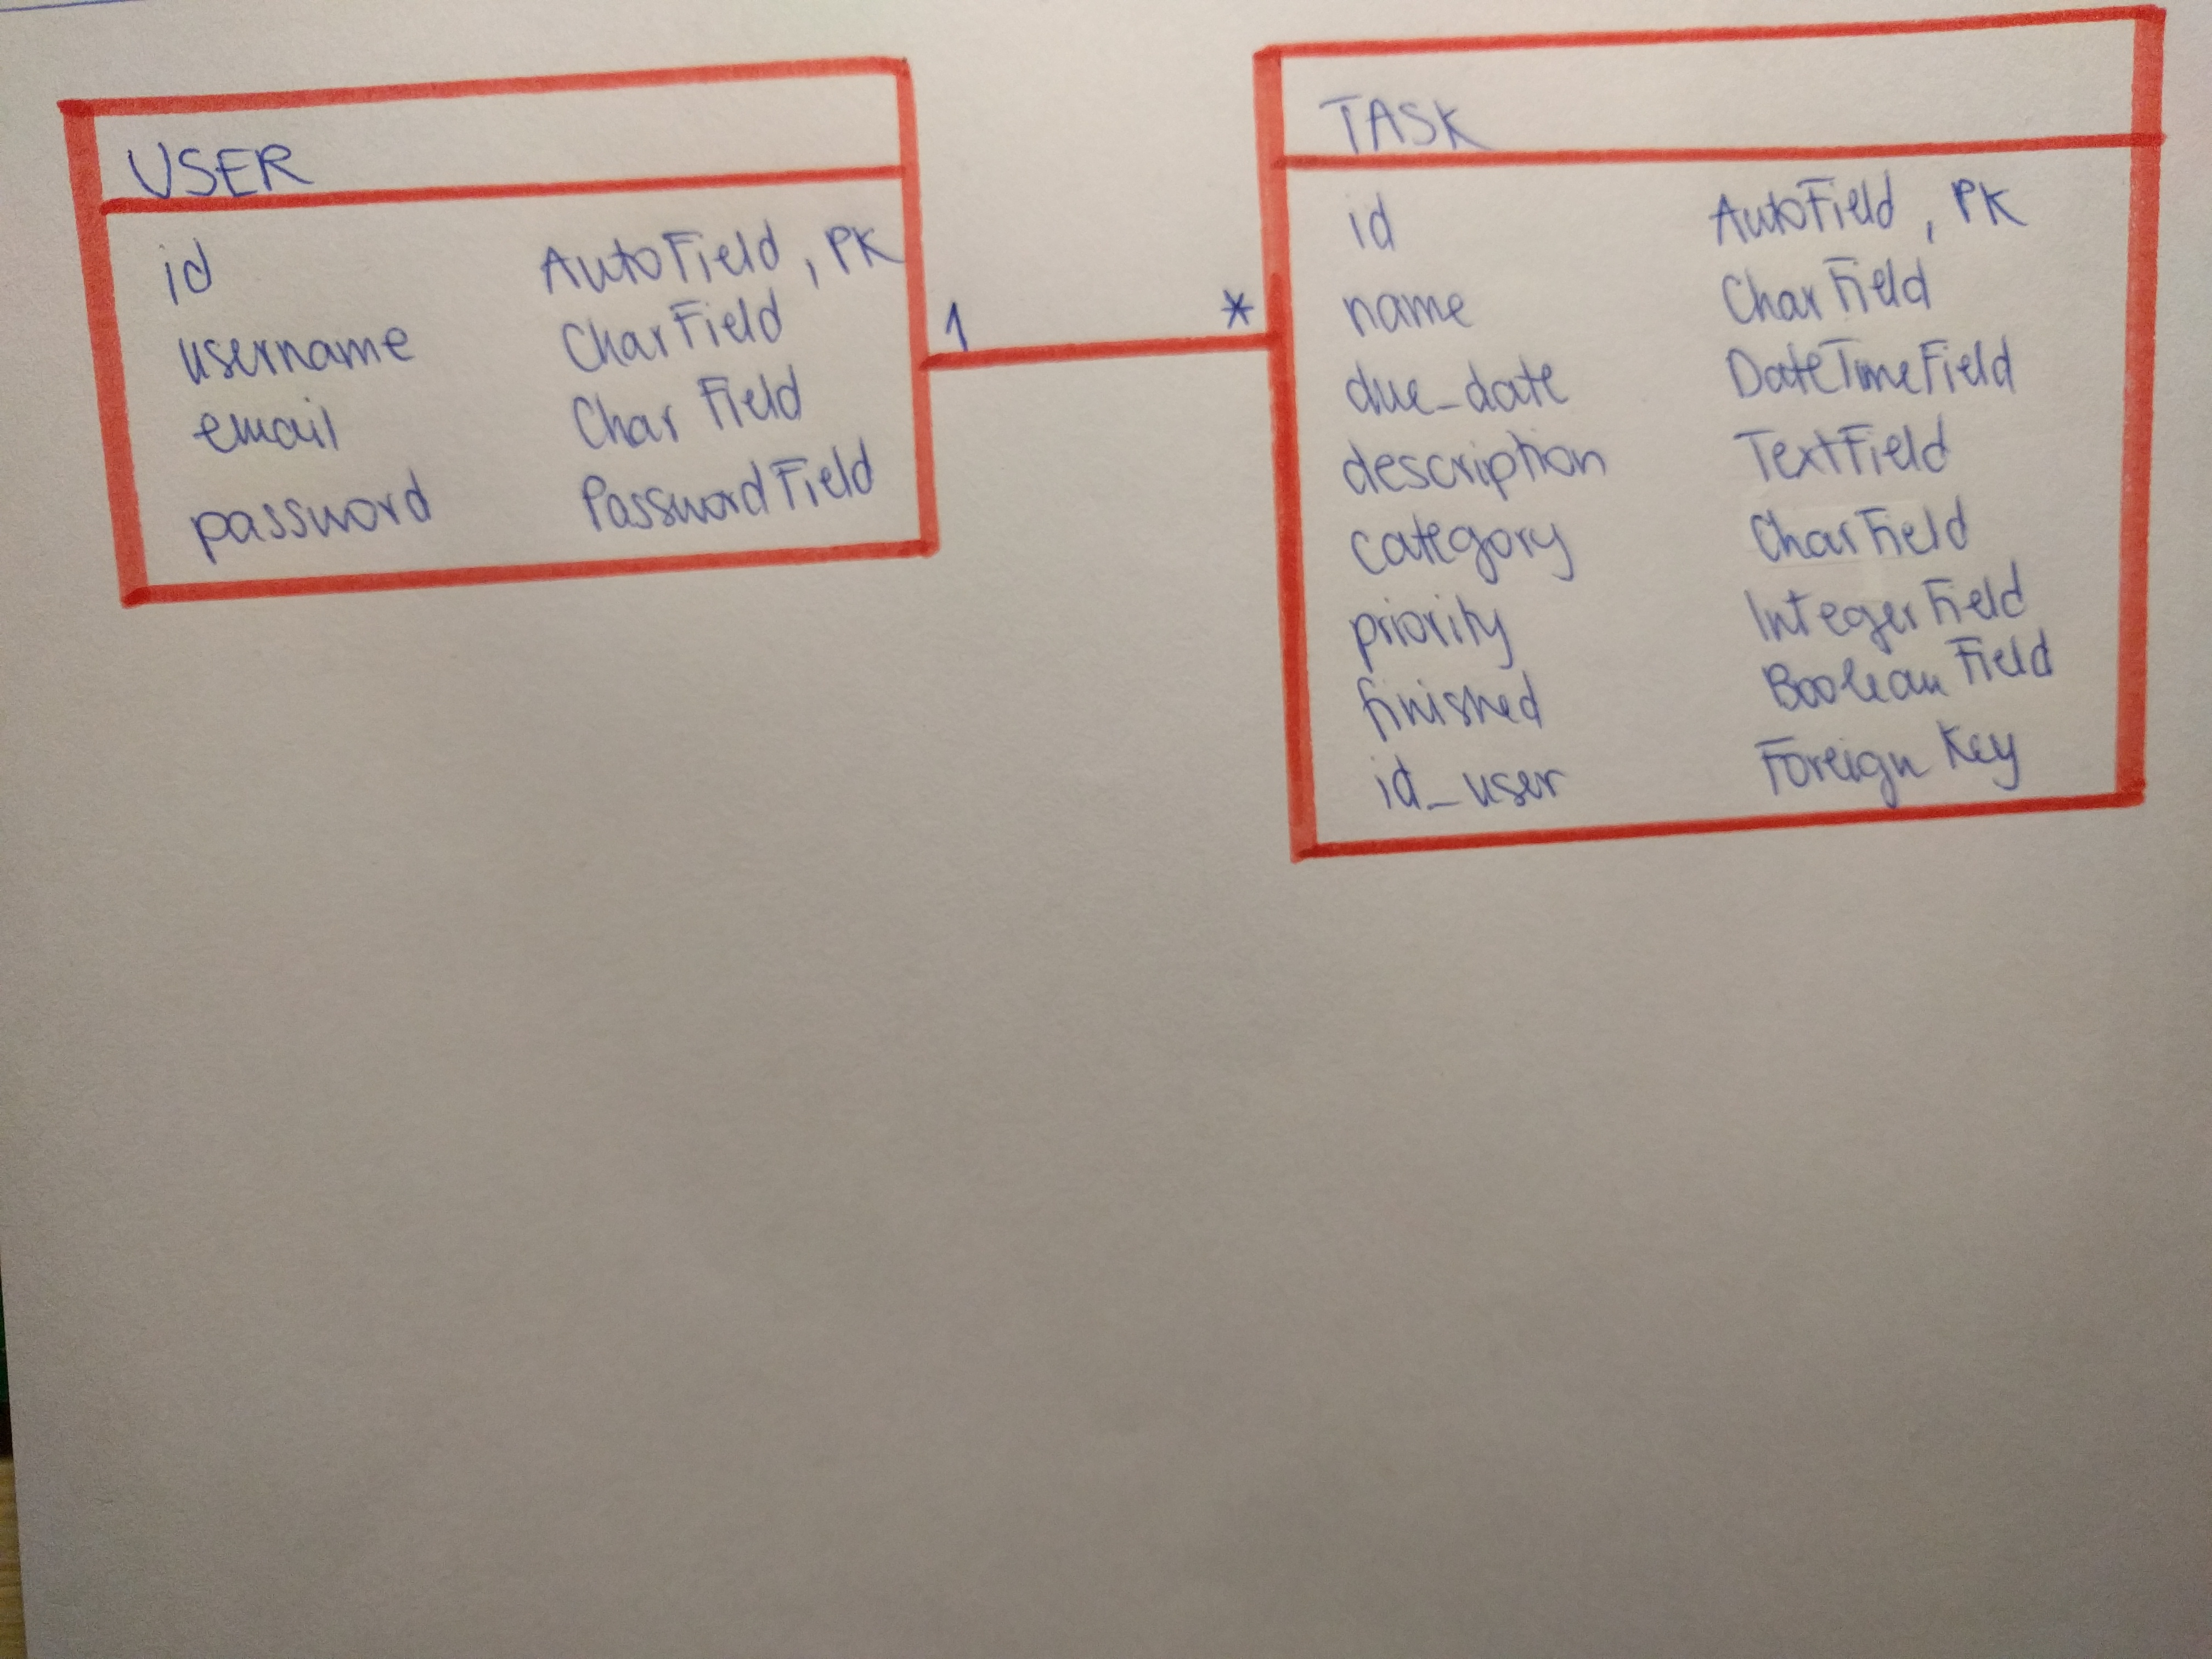 USER
id AutoField, PK
username CharField
email CharField
password PasswordField
1 *
TASK
id AutoField, PK
name CharField
due_date DateTimeField
description TextField
category CharField
priority IntegerField
finished BooleanField
id_user Foreign Key